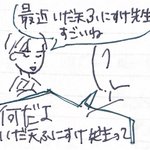 最近いだ天ふにすけ先生
すごいね
何だよ
いだ天ふにすけ先生って